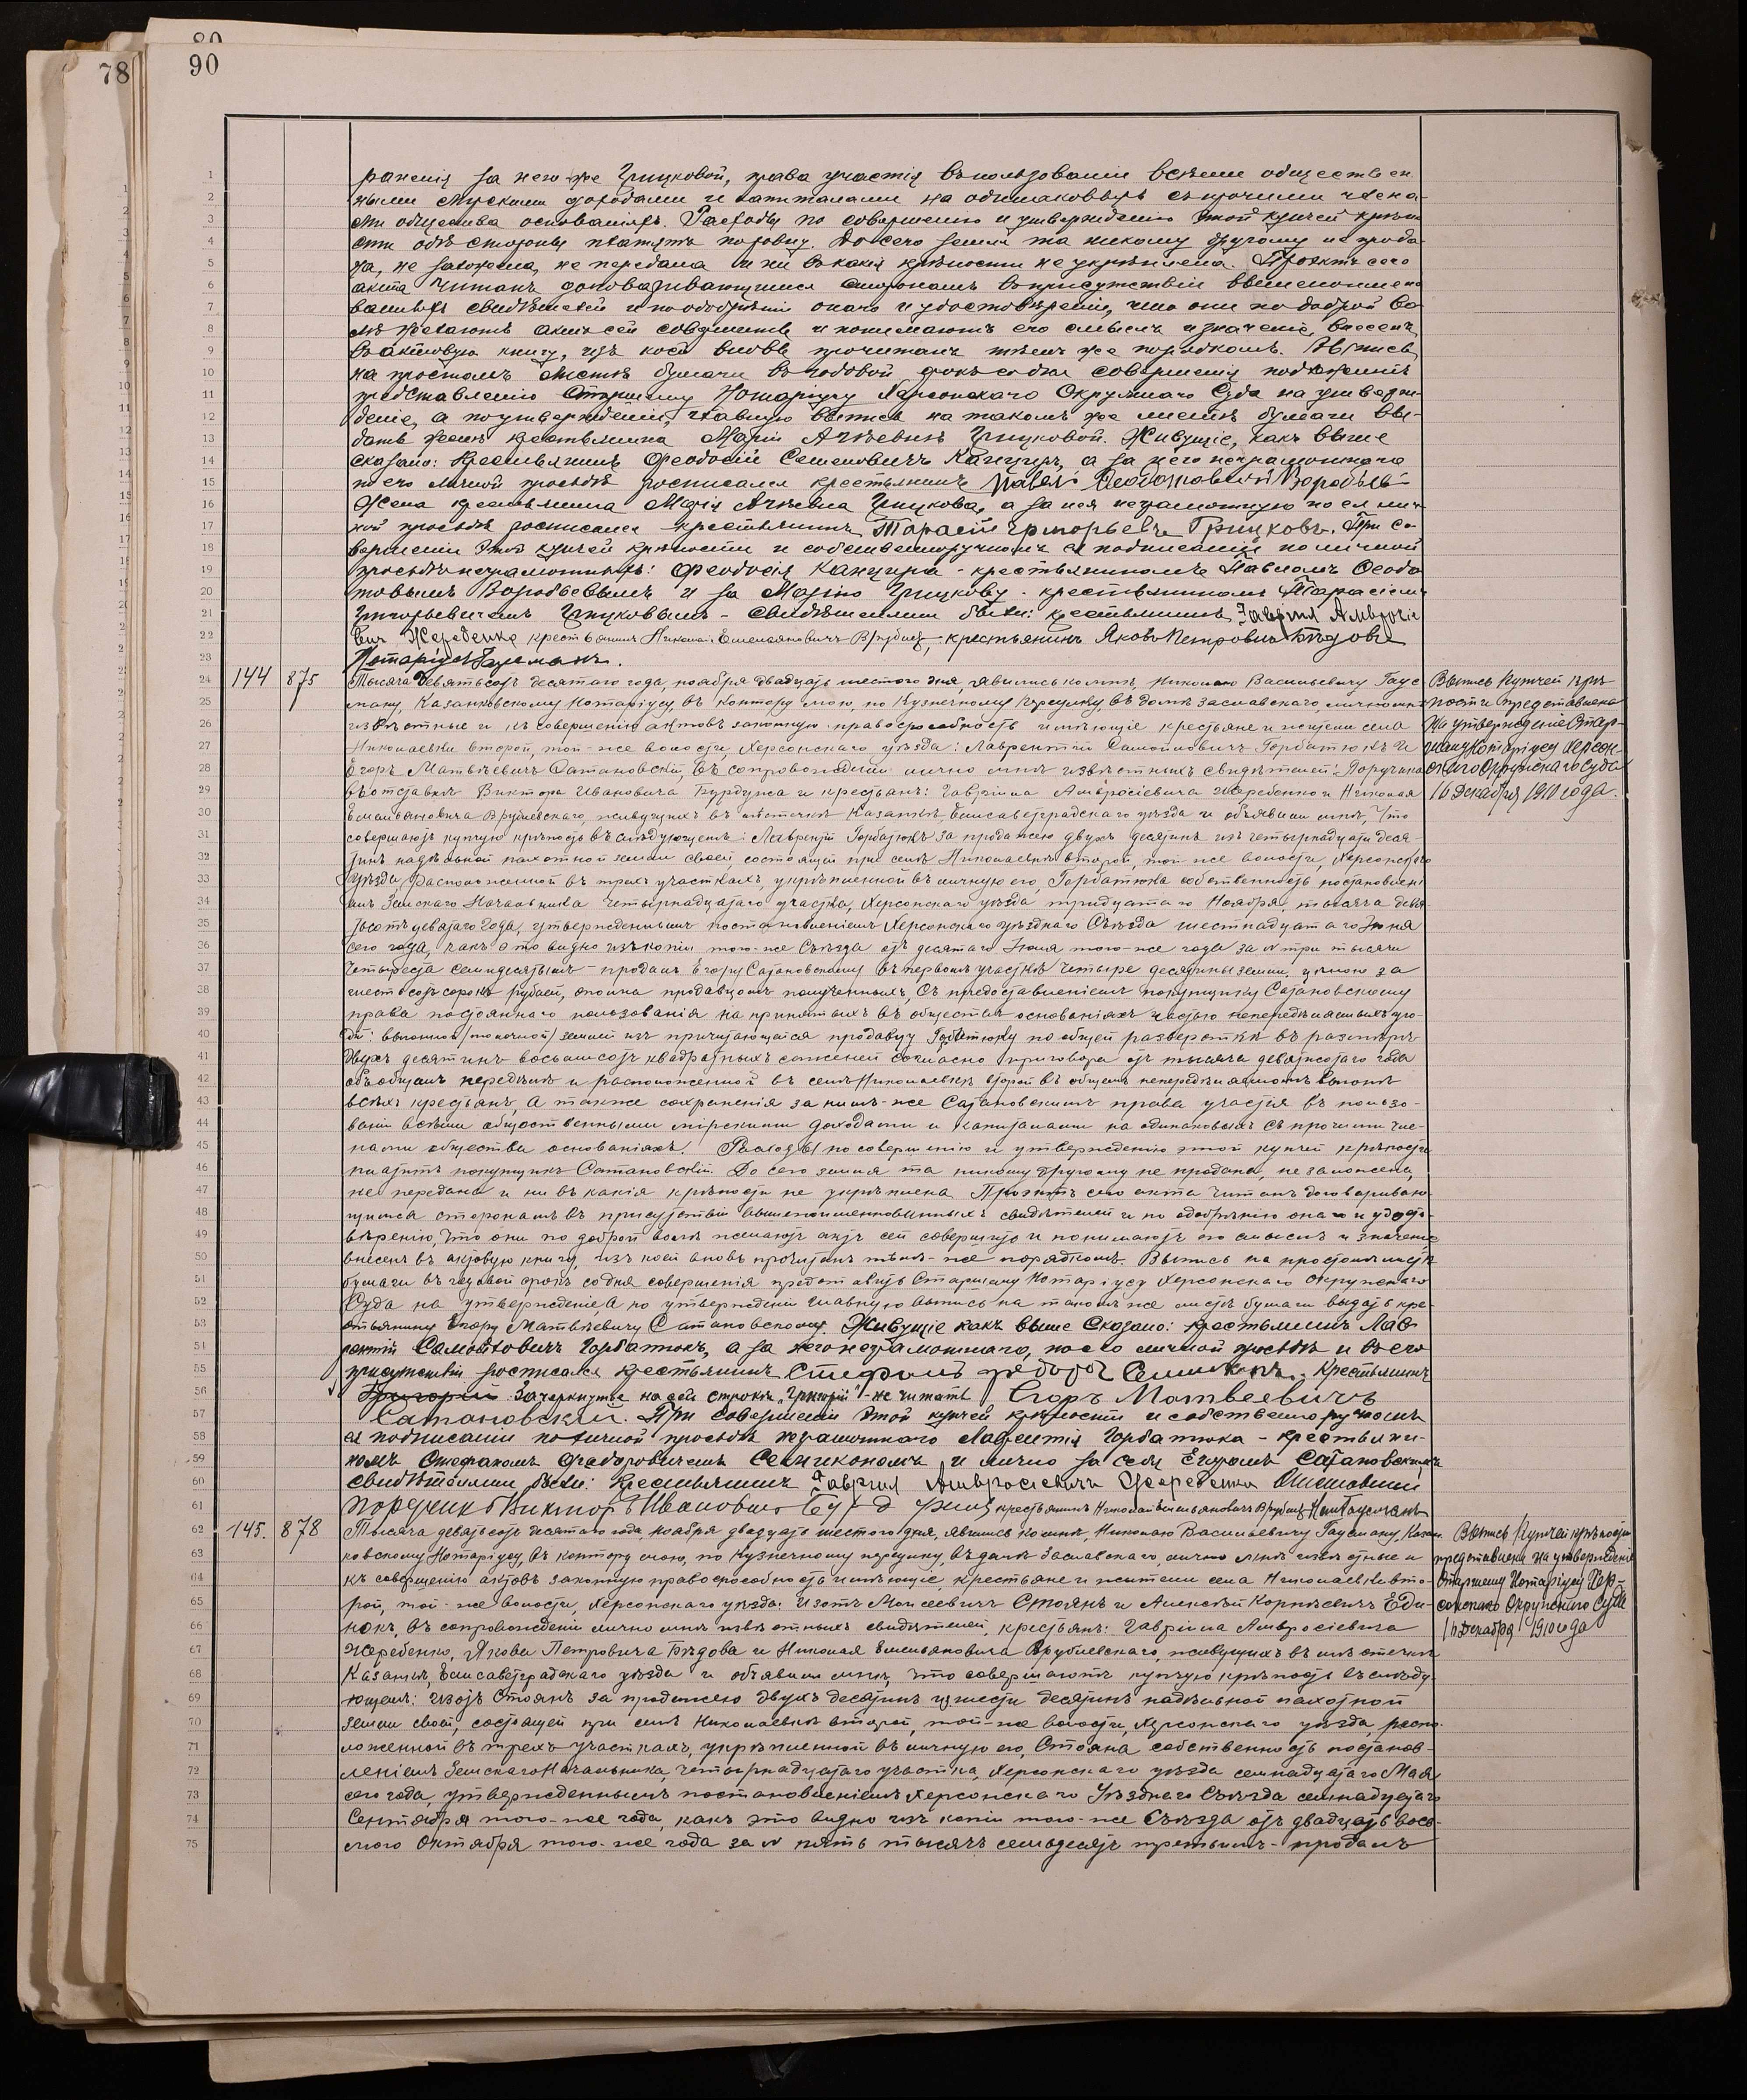 80
78
90
ранения за нею-же Грицковой, права участія въ пользованіи всѣми обществен
ными мірскими доходами и капиталами на одинаковыхъ съ прочими члена-
ми общества основаніяхъ. Расходы по совершенію и утвержденію этой купчей крѣпо
сти обѣ стороны платятъ поровну. До сего земля та никому другому не прода
на, не заложена, не передана и ни въ какія крѣпости не укрѣплена. Проэктъ сего
акта читанъ договаривающимся сторонамъ въ присутствіи вышепоимено
ванныхъ свидѣтелей и по одобреніи онаго и удостовѣреніи, что они по доброй во
лѣ желаютъ актъ сей совершить и понимаютъ его смыслъ и значеніе, внесенъ
въ актовую книгу, изъ коей вновь прочитанъ тѣмъ же порядкомъ. Выпись
на простомъ листѣ бумаги въ годовой срокъ со дня совершенія подлежитъ
представленію Старшему Нотаріусу Херсонскаго Окружнаго Суда на утверж-
деніе, а по утвержденіи, главную выпись на такомъ же листѣ бумаги вы-
дать женѣ крестьянина Маріи Агѣевнѣ Грицковой. Живущіе, какъ выше
сказано: Крестьянинъ Феодосій Семеновичъ Канцуръ, а за него неграмотнаго
по его личной просьбѣ росписался крестьянинъ Павелъ Воробьев
Жена крестьянина Марія Агѣевна Грицкова, а за нея неграмотную по ея лич-
ной просьбѣ росписался крестьянинъ Тарасій Григорьевъ Грицковъ. При со-
вершеніи этой купчей крѣпости и собственноручномъ ея подписаніи по личной
просьбѣ неграмотныхъ: Феодосія Канцура - крестьяниномъ Павломъ Феодо
товымъ Воробьевымъ и за Марію Грицкову - крестьяниномъ Тарасіемъ
Григорьевичемъ Грицковымъ - свидѣтелями были: крестьянинъ Гавріил Амвросіе
вич Жеребенко крестьянинъ Николай Емельяновичъ Врублев, крестьянинъ Яковъ Петровичъ Бѣдовъ
Нотаріусъ Гаусманъ.
144 875 Тысяча девятьсотъ десятаго года, ноября двадцать шестого дня, явились ко мнѣ, Николаю Васильевичу Гаус
ману, Казанковскому Нотаріусу въ контору мою, по Кузнечному переулку въ домѣ Заславскаго лично мнѣ
извѣстные и къ совершенію актовъ законную правоспособность имѣющіе крестьяне и жители села
Николаевки второй, той-же волости, Херсонскаго уѣзда: Лаврентій Самойловичъ Горбатюкъ и
Егоръ Матвѣевичъ Сатановскій, въ сопровожденіи лично мнѣ извѣстныхъ свидѣтелей: Поручика
въ отставкѣ Виктора Ивановича и крестьянъ: Гавріила Амвросіевича Жеребенко и Николая
Емельяновича Врублевскаго, живущихъ въ мѣстечкѣ Казанкѣ, Елисаветградскаго уѣзда и объявили мнѣ, что
совершаютъ купчую крѣпость въ слѣдующемъ: Лаврентій Горбатюкъ за продажею двухъ десятинъ изъ четырнадцати деся-
тинъ надѣльной пахотной земли своей состоящей при селѣ Николаевкѣ второй, той-же волости, Херсонскаго
уѣзда, расположенной въ трехъ участкахъ, укрѣпленной въ личную его, Горбатюка собственность постановлені
емъ Земскаго Начальника четырнадцатаго участка, Херсонскаго уѣзда тридцатаго Ноября, тысяча девя-
тьсотъ девятаго года, утвержденнымъ постановленіемъ Херсонскаго уѣзднаго Съѣзда шестнадцатаго Іюня
сего года, какъ это видно изъ копіи того-же Съѣзда отъ десятаго Іюля того-же года за № три тысячи
четыреста семидесятымъ - продалъ Егору Сатановскому въ первомъ участкѣ четыре десятины земли, цѣною за
шестьсотъ сорокъ рублей, сполна продавцомъ полученныхъ, съ предоставленіемъ покупщику Сатановскому
права постояннаго пользованія на принятыхъ въ обществѣ основаніяхъ частью непередѣляемыхъ уго-
дій: выгонной /толочной/ землей изъ причитающейся продавцу Горбатюку по общей разверсткѣ въ размѣрѣ
двухъ десятинъ восьмисотъ квадратныхъ саженей согласно приговора отъ тысяча девятисотаго года
объ общемъ передѣлѣ и расположенной въ селѣ Николаевкѣ второй въ общемъ непередѣляемомъ выгонѣ
всѣхъ крестьянъ, а также сохраненія за нимъ-же Сатановскимъ права участія въ пользо-
ваніи всѣми общественными мірскими доходами и капиталами на одинаковыхъ съ прочими чле-
нами общества основаніяхъ. Расходы по совершенію и утвержденію этой купчей крѣпости
платитъ покупщикъ Сатановскій. До сего земля та никому другому не продана, не заложена,
не передана и ни въ какія крѣпости не укрѣплена. Проэктъ сего акта читанъ договариваю-
щимся сторонамъ въ присутствіи вышепоименованныхъ свидѣтелей и по одобренію онаго и удосто-
вѣренію, что они по доброй волѣ желаютъ актъ сей совершить и понимаютъ его смыслъ и значеніе
внесенъ въ актовую книгу, изъ коей вновь прочитанъ тѣмъ-же порядкомъ. Выпись на простомъ листѣ
бумаги въ годовой срокъ со дня совершенія представить Старшему Нотаріусу Херсонскаго Окружнаго
Суда на утвержденіе, а по утвержденіи главную выпись на такомъ же листѣ бумаги выдать кре-
стьянину Егору Матвѣевичу Сатановскому. Живущіе какъ выше сказано: крестьянинъ Лав-
рентій Самойловичъ Горбатюкъ, а за него неграмотнаго, по его личной просьбѣ и въ его
присутствіи росписался крестьянинъ Стефанъ Крестьянинъ
Григорій Зачеркнутое на сей строкѣ „Григорій“ - не читать Егоръ Матвеевичъ
Сатановский. При совершеніи этой купчей крѣпости и собственноручномъ
ея подписаніи по личной просьбѣ неграмотнаго Лаврентія Горбатюка - крестьяни-
номъ Стефаномъ Феодоровичемъ Семикономъ и лично за себя Егоромъ Сатановскимъ
свидѣтелями были: Крестьянинъ Гавріил Амвросіевич Жеребенко
поручикъ Виктор Иванович крестьянинъ Николай Емельяновичъ Врублев Нот. Гаусманъ
Выпись купчей крѣ-
пости представлена
на утвержденіе Стар-
шему Нотаріусу Херсон-
скаго Окружнаго Суда
16 Декабря 1910 года.
145. 878 Тысяча девятьсотъ десятаго года, ноября двадцать шестого дня, явились ко мнѣ, Николаю Васильевичу Гаусману, Казан-
ковскому Нотаріусу, въ контору мою, по Кузнечному переулку, въ домѣ Заславскаго, лично мнѣ извѣстные и
къ совершенію актовъ законную правоспособность имѣющіе, крестьяне и жители села Николаевки вто-
рой, той-же волости, Херсонскаго уѣзда: Изотъ Моисеевичъ Стоянъ и Алексѣй Корнѣевичъ Еди-
нокъ, въ сопровожденіи лично мнѣ извѣстныхъ свидѣтелей, крестьянъ: Гавріила Амвросіевича
Жеребенко, Якова Петровича Бѣдова и Николая Емельяновича Врублевскаго, живущихъ въ мѣстечкѣ
Казанкѣ, Елисаветградскаго уѣзда и объявили мнѣ, что совершаютъ купчую крѣпость въ слѣду-
ющемъ: Изотъ Стоянъ за продажею двухъ десятинъ изъ шести десятинъ надѣльной пахотной
земли своей, состоящей при селѣ Николаевкѣ второй, той-же волости, Херсонскаго уѣзда, распо-
ложенной въ трехъ участкахъ, укрѣпленной въ личную его, Стояна собственность постанов-
леніемъ Земскаго Начальника, четырнадцатаго участка, Херсонскаго уѣзда семнадцатаго Мая
сего года, утвержденнымъ постановленіемъ Херсонскаго Уѣзднаго Съѣзда семнадцатаго
Сентября того-же года, какъ это видно изъ копіи того-же Съѣзда отъ двадцать вось-
мого Октября того-же года за № пять тысячъ семьдесятъ третьимъ - продалъ
Выпись купчей крѣпости
представлена на утвержденіе
Старшему Нотаріусу Хер-
сонскаго Окружнаго Суда
16 Декабря 1910 года